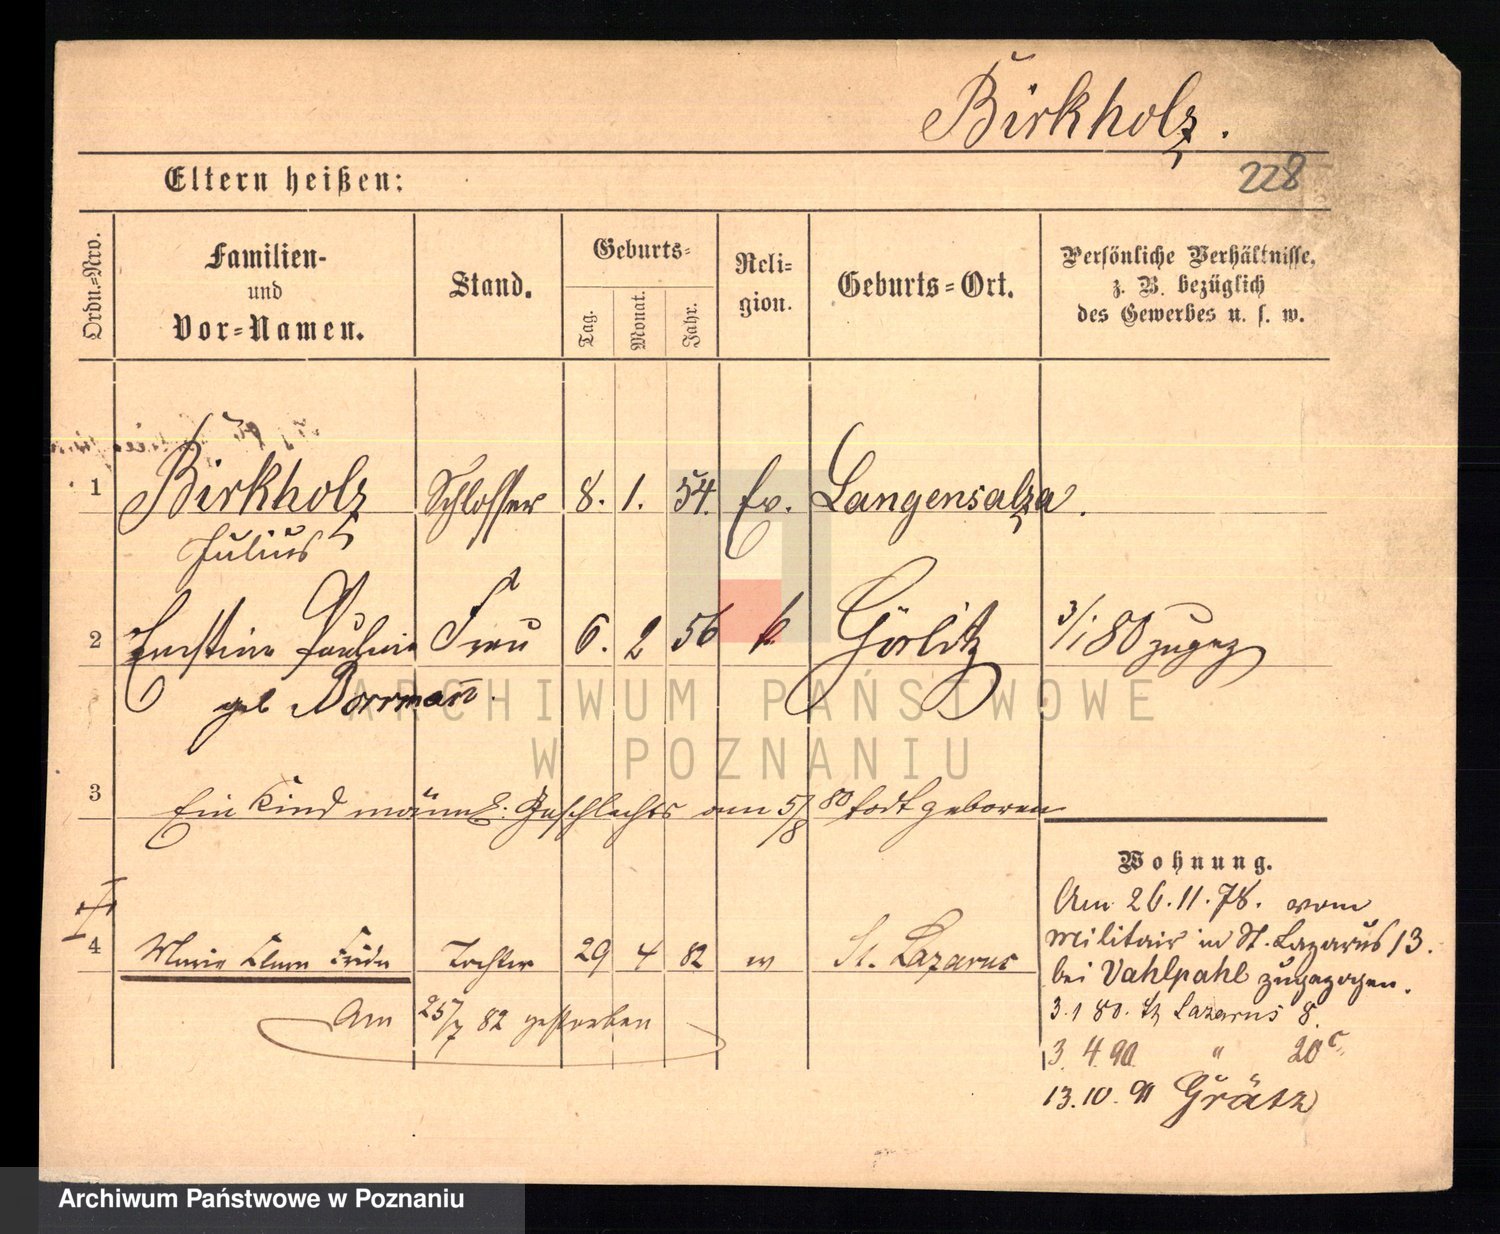 Birkholz.
228
Eltern heißen:
Ordn.-Nro.
Familien-
und
Vor-Namen.
Stand.
Geburts-
Tag.
Monat.
Jahr.
Reli-
gion.
Geburts-Ort.
Persönliche Verhältnisse,
z. B. bezüglich
des Gewerbes u. s. w.
1 Birkholz Schlosser 8. 1. 54. Ev. Langensalza.
Julius
2 Ernstine Pauline Frau 6. 2 56 k. Görlitz 3/1 80 zugez
geb Dorrmann.
3 Ein Kind männl. Geschlechts am 5/8 80 todt geboren
4 Marie Clara Frida Tochter 29 4 82 w St. Lazarus
Am 25/7 82 gestorben
Wohnung.
Am 26.11.78. vom
Militair in St. Lazarus 13.
bei Vahlpahl zugezogen.
3.1 80. St Lazarus 8.
3. 4. 90. " 20c
13.10.91 Grätz
ARCHIWUM PAŃSTWOWE
W POZNANIU
Archiwum Państwowe w Poznaniu